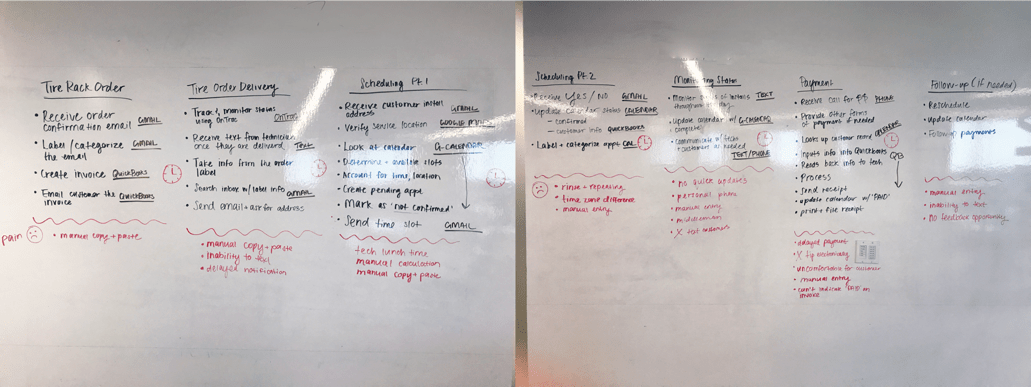 Tire Rack Order
• Receive order
confirmation email GMAIL
• Label/categorize GMAIL
the email
• Create invoice QUICKBOOKS
• Email customer the QUICKBOOKS
invoice
pain
• manual copy + paste
Tire Order Delivery
• Track + monitor status
using OnTrac ONTRAC
• Receive text from technician
once they are delivered TEXT
• Take info from the order
label
• Search inbox w/ label info GMAIL
• Send email + ask for address
• manual copy + paste
• inability to text
• delayed notification
Scheduling Pt. 1
• Receive customer install GMAIL
address
• Verify service location GOOGLE MAPS
• Look at calendar G-CALENDAR
• Determine available slots
• Account for time, location
• Create pending appt.
• Mark as "not confirmed"
• Send time slot GMAIL
tech lunch time
manual calculation
manual copy + paste
Scheduling Pt. 2
• Receive YES/NO GMAIL
• Update calendar status CALENDAR
- confirmed
- customer info QUICKBOOKS
• Label + categorize appt. CAL
• rinse + repeating
• time zone difference
• manual entry
Monitoring Status
• Monitor status of installs TEXT
throughout day
• Update calendar w/
completed
• Communicate w/ techs
+ customers as needed
TEXT/PHONE
• no quick updates
• personal phone
• manual entry
• middleman
• X text customers
Payment
• Receive call for PHONE
• Provide other forms
of payment if needed
• Looks up customer CALENDAR
• Inputs info into QuickBooks
• Reads back info to tech
QB
• Process
• Send receipt
• update calendar w/ "PAID"
• print + file receipt
• delayed payment
• X tip
• uncomfortable for customer
• manual entry
• can't indicate on
invoice
Follow-up (If needed)
• Reschedule
• Update calendar
• Follow up payments
• manual entry
• inability to text
• no feedback opportunity